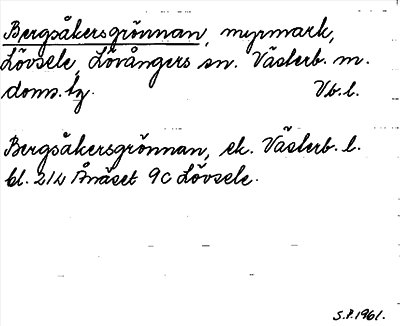 Bergsåkersgrönnan, myrmark,
Lövsele, Lövångers sn. Västerb. m.
doms. bg. Vb. l.
Bergsåkersgrönnan, ek. Västerb. l.
bl. 214 Ånäset 9C Lövsele.
S.P. 1961.